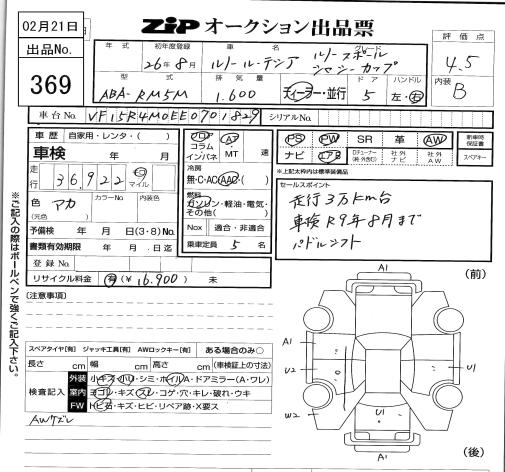 02月21日
ZIPオークション出品票
出品No.
369
年式
初年度登録
車名
グレード
評価点
26年8月
ルノールーテシア
ルノースポール
シャシーカップ
4.5
型式
排気量
ドア
ハンドル
内装
ABA-RM5M
1.600
ディーラー・並行
5
左・右
B
車台No.
VF15R4M0EE0701829
シリアルNo.
車歴 自家用・レンタ・( )
フロア
コラム
インパネ
AT
MT
速
PS PW SR 革 AW
新車時保証書
車検 年 月
ナビ エアB 社外ナビ 社外AW
スペアキー
走行
36,922
マイル
冷房
無・C・AC・AAC・( )
※上記太枠は標準装備品
色 アカ
(元色)
カラーNo.
内装色
燃料
ガソリン・軽油・電気・
その他( )
セールスポイント
走行3万km台
車検R9年8月まで
パドルシフト
予備検 年 月 日(3・8)No.
Nox 適合・非適合
書類有効期限 年 月 日迄
乗車定員 5 名
登録No.
リサイクル料金 有(¥16,900) 未
(注意事項)
※ご記入の際はボールペンで強くご記入下さい。
(前)
A1
A1
U2
U1
W2
U1
A1
(後)
スペアタイヤ[有] ジャッキ工具[有] AWロックキー[有] ある場合のみ○
長さ cm 幅 cm 高さ cm (車検証上の寸法)
検査記入
外装 小キズ・小凹・シミ・ホイルA・ドアミラー(A・ワレ)
室内 ヨゴレ・キズ・スレ・コゲ・穴・キレ・破れ・ウキ
FW トビ石・キズ・ヒビ・リペア跡・X要ス
AWクズレ